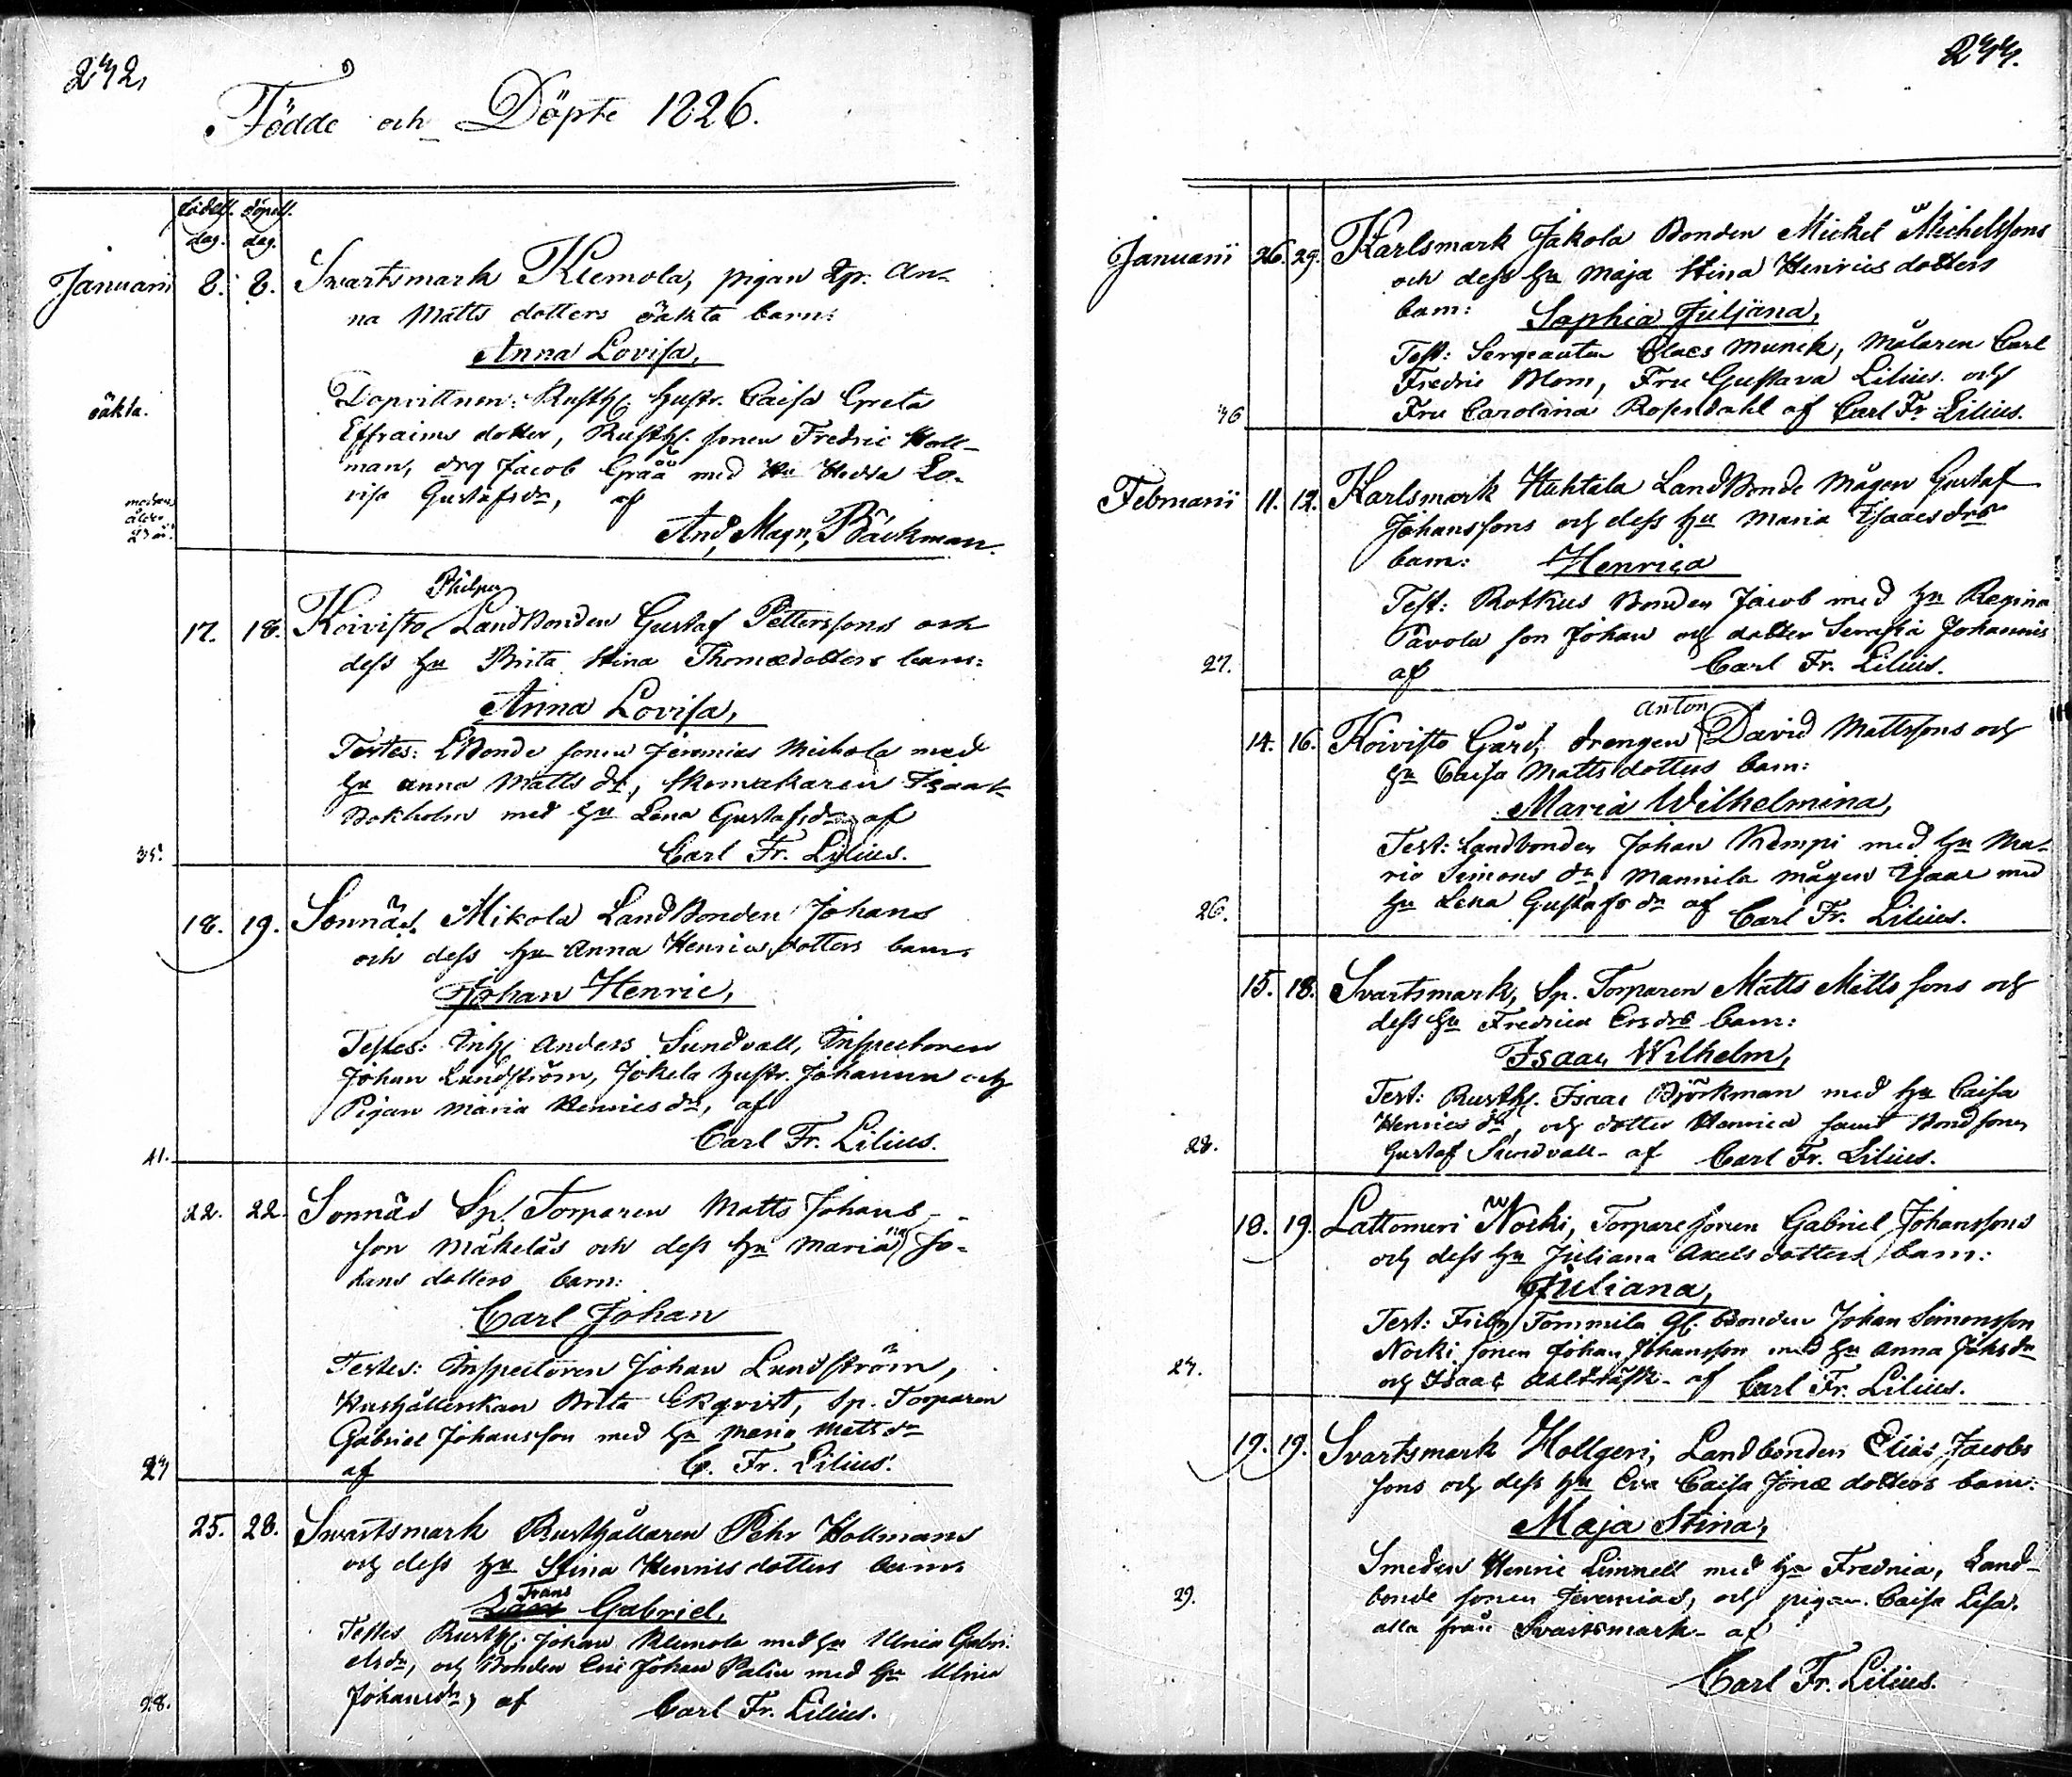 242,
Födde och Döpte 1826.
födels. döpels.
dag. dag.
Januarii 8. 8. Svartsmark Klemola, pigan Sp. An-
na Matts dotters oäkta barn:
Anna Lovisa,
Dopvittnen: Rusth. hustr. Caisa Greta
oäkta.
Effraims dotter, Rusth. sonen Fredric Holl-
man, drg Jacob Gråå med Hu Hedda Lo-
visa Gustafsdr, af
modren
ålder
And. Magn. Bäckman.
Philpu
17. 18. Koivisto LandBonden Gustaf Petterssons och
dess hu Brita Stina Thomædotters barn:
Anna Lovisa,
Testes: LBonde sonen Jeremias Michola med
hu Anna Matts dr, Skomakaren Isaac
Bokholm med hu Lena Gustafsdr af
35. Carl Fr. Lilius.
18. 19. Sonnäs Mikola LandBonden Johans
och dess hu Anna Henrics dotters barn
Johan Henric,
Testes: Inh. Anders Sundvall, Inspectoren
Johan Lundström, Jokela hustr. Johanna och
Pigan Maria Henricsdr, af
41. Carl Fr. Lilius.
22. 22. Sonnäs Sp. Torparen Matts Johans-
son Mäkeläs och dess hu Maria Jo-
hans dotters barn:
Carl Johan
Testes: Inspectoren Johan Lundström,
Hushållerskan Brita Ekqvist, Sp. Torparen
Gabriel Johansson med hu Maria Mattsdr
27 af C. Fr. Lilius.
25. 28. Svartsmark Rusthållaren Pehr Hollmans
och dess hu Stina Henrics dotters barn
Frans
Gabriel,
Testes Rusth. Johan Klemola med hu Ulrica Gabri-
elsdr, och Bonden Eric Johan Palin med hu Ulrica
Johansdr, af Carl Fr. Lilius.
28.
244.
Januarii 26. 29. Karlsmark Jakola Bonden Michel Michelssons
och dess hu Maja Stina Henrics dotters
barn: Sophia Juljana,
Test: Sergeanten Claes Munck, Målaren Carl
Fredric Blom, Fru Gustava Lilius och
46 Fru Carolina Rosendahl af Carl Fr. Lilius.
Februarii 11. 12. Karlsmark Huhtala LandBonde Mågen Gustaf
Johanssons och dess hu Maria Isaacsdrs
barn: Henrica
Test: Rotkus Bonden Jacob med hu Regina
Pavola son Johan och dotter Serafia Johannis
27. af Carl Fr. Lilius.
Anton
14. 16. Koivisto Gård, drengen David Mattssons och
hu Caisa Matts dotters barn:
Maria Wilhelmina,
Test: Landbonden Johan Kempi med hu Ma-
ria Simons dr, Mannila mågen Isaac med
hu Lena Gustafs dr af Carl Fr. Lilius.
26.
15. 18. Svartsmark, Sp. Torparen Matts Matts sons och
dess hu Fredrica Ersdrs barn:
Isaac Wilhelm,
Test: Rusth. Isaac Björkman med hu Caisa
Henrics dr, och dotter Henrica samt Bondsonen
28. Gustaf Sundvall af Carl Fr. Lilius.
18. 19. Lattomeri Nocki, Torpare sonen Gabriel Johanssons
och dess hu Juliana Axels dotters barn:
Juliana,
Test: Tommila Gl. bonden Johan Simonsson
Nocki sonen Johan Johansson med hu Anna Johsdr
27. och Isaac af Carl Fr. Lilius.
19. 19. Svartsmark Hollgeri, Landbonden Elias Jacobs
sons och dess hu Eva Caisa Jonæ dotters barn:
Maja Stina,
Smeden Henric Limnell med hu Fredrica, Land-
29. bonde sonen Jeremias, och pigan Caisa Lisa.
alla från Svartsmark af
Carl Fr. Lilius.